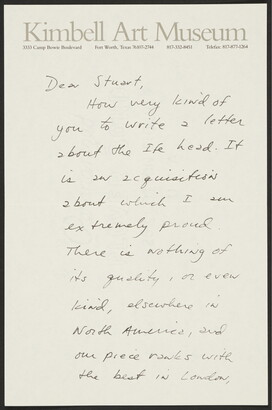 Kimbell Art Museum
3333 Camp Bowie Boulevard Fort Worth, Texas 76107-2744 817-332-8451 Telefax: 817-877-1264
Dear Stuart,
How very kind of
you to write a letter
about the Ife head. It
is an acquisition
about which I am
extremely proud.
There is nothing of
its quality, or even
kind, elsewhere in
North America, and
our piece ranks with
the best in London,